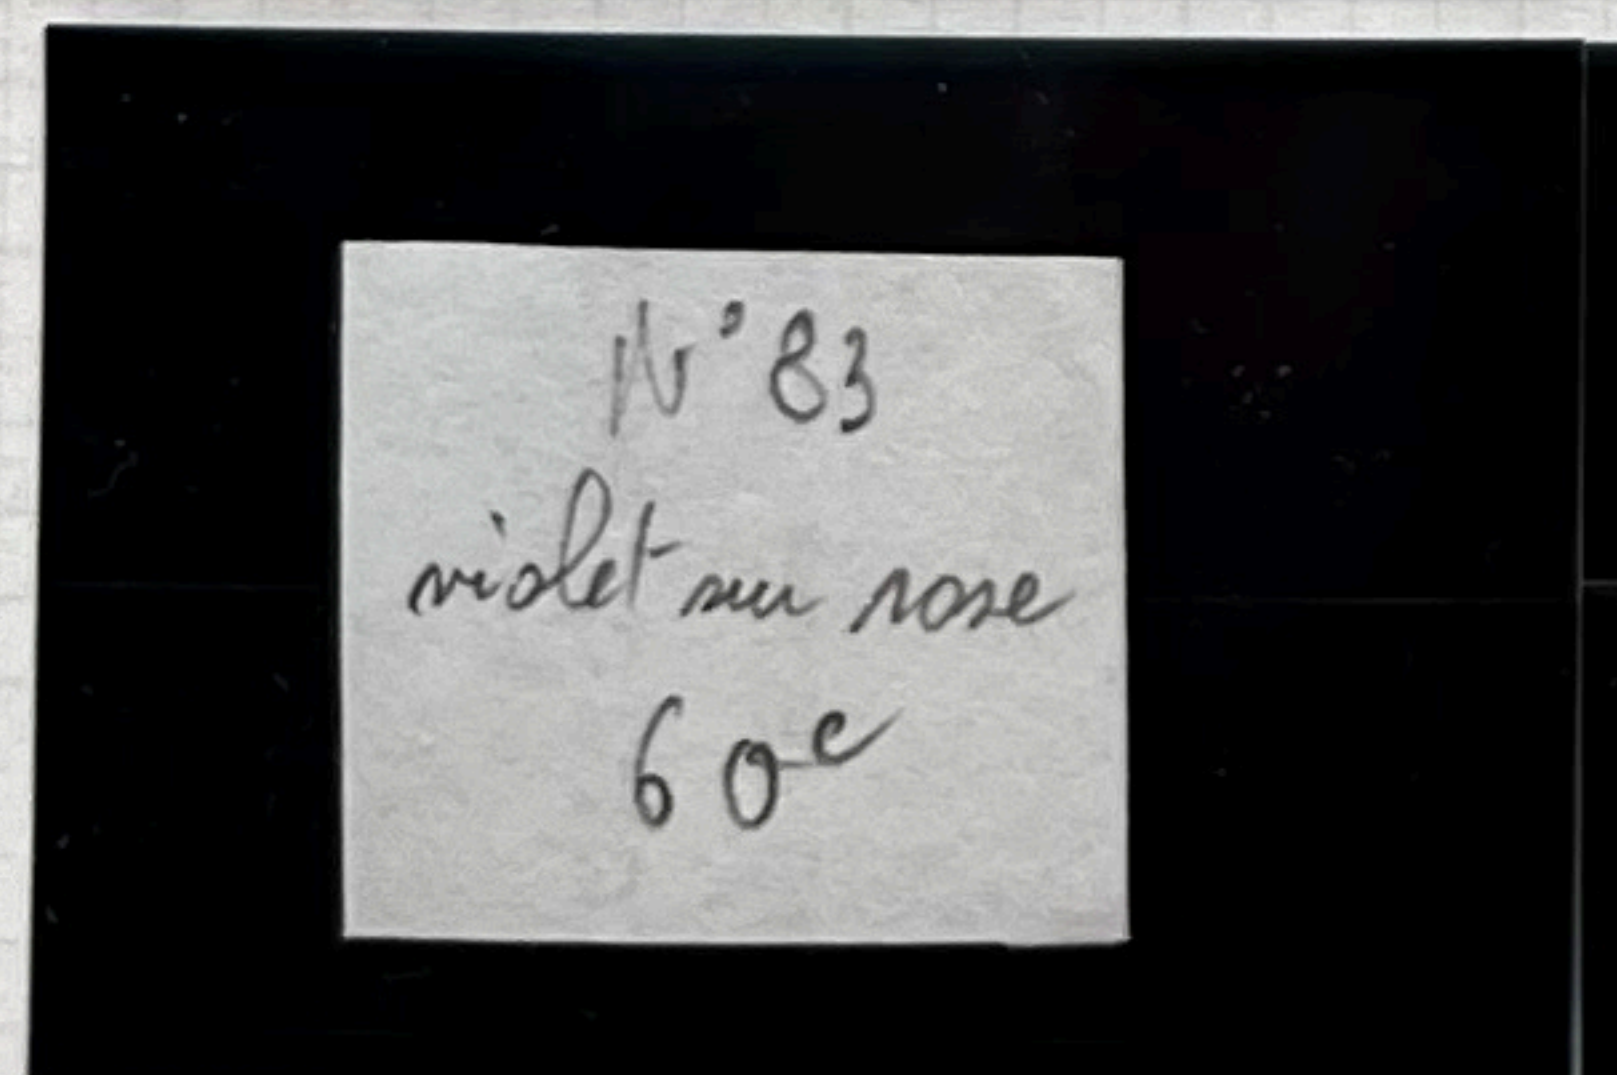 N° 83
violet sur rose
60c